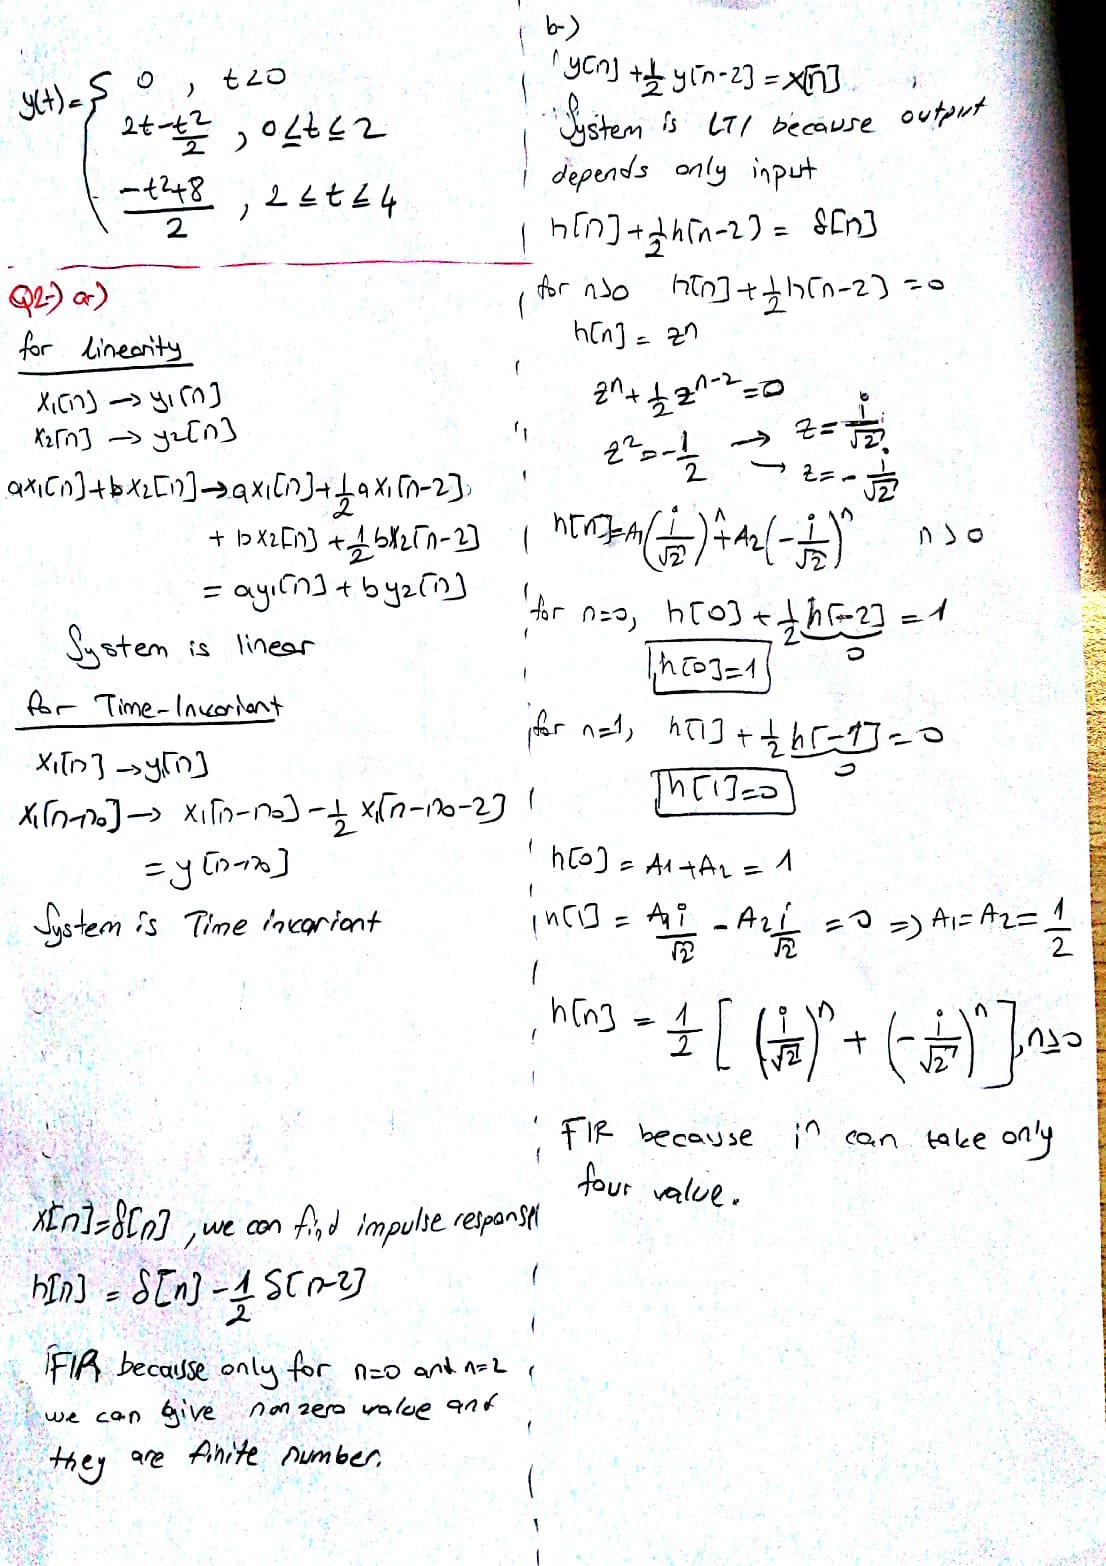 y(t) = { 0 , t<0
2t - t²/2 , 0≤t≤2
(-t²+8)/2 , 2≤t≤4
Q2-) a-)
for linearity
x1[n] → y1[n]
x2[n] → y2[n]
ax1[n]+bx2[n] → ax1[n]+1/2 ax1[n-2]
+ bx2[n] + 1/2 bx2[n-2]
= ay1[n] + by2[n]
System is linear
for Time-Invariant
x1[n] → y[n]
x1[n-n0] → x1[n-n0] - 1/2 x1[n-n0-2]
= y[n-n0]
System is Time invariant
x[n]=δ[n] , we can find impulse response
h[n] = δ[n] - 1/2 δ[n-2]
FIR because only for n=0 and n=2
we can give non zero value and
they are finite number.
b-)
y[n] + 1/2 y[n-2] = x[n]
System is LTI because output
depends only input
h[n] + 1/2 h[n-2] = δ[n]
for n>0 h[n] + 1/2 h[n-2] = 0
h[n] = zⁿ
zⁿ + 1/2 zⁿ⁻² = 0
z² = -1/2 → z = i/√2
→ z = - i/√2
h[n] = A1(i/√2)ⁿ + A2(-i/√2)ⁿ n>0
for n=0, h[0] + 1/2 h[-2] = 1
0
h[0]=1
for n=1, h[1] + 1/2 h[-1] = 0
0
h[1]=0
h[0] = A1+A2 = 1
h[1] = A1 i/√2 - A2 i/√2 = 0 => A1=A2= 1/2
h[n] = 1/2 [ (i/√2)ⁿ + (-i/√2)ⁿ ], n≥0
FIR because iⁿ can take only
four value.